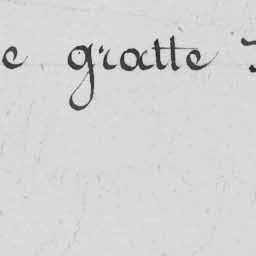 e gratte